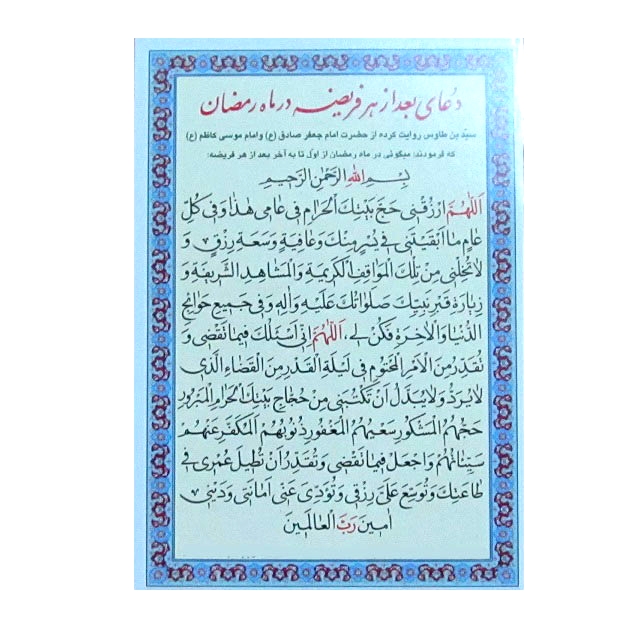 دعای بعد از هر فریضه در ماه رمضان
سیّد بن طاوس روایت کرده از حضرت امام جعفر صادق (ع) و امام موسی کاظم (ع)
که فرمودند: میگوئی در ماه رمضان از اوّل تا به آخر بعد از هر فریضه:
بِسْمِ اللهِ الرَّحْمٰنِ الرَّحیمِ
اَللّٰهُمَّ ارْزُقْنی حَجَّ بَیْتِكَ الْحَرامِ فی عامی هٰذا وَ فی كُلِّ
عامٍ ما اَبْقَیْتَنی فی یُسْرٍ مِنْكَ وَ عافِیَةٍ وَ سَعَةِ رِزْقٍ وَ
لا تُخْلِنی مِنْ تِلْكَ الْمَواقِفِ الْكَریمَةِ وَ الْمَشاهِدِ الشَّریفَةِ وَ
زِیارَةِ قَبْرِ نَبِیِّكَ صَلَواتُكَ عَلَیْهِ وَ الِهِ وَ فی جَمیعِ حَوائِجِ
الدُّنْیا وَ الْاٰخِرَةِ فَكُنْ لی، اَللّٰهُمَّ اِنّی اَسْئَلُكَ فیما تَقْضی وَ
تُقَدِّرُ مِنَ الْاَمْرِ الْمَحْتُومِ فی لَیْلَةِ الْقَدْرِ مِنَ الْقَضاءِ الَّذی
لا یُرَدُّ وَ لا یُبَدَّلُ اَنْ تَكْتُبَنی مِنْ حُجّاجِ بَیْتِكَ الْحَرامِ الْمَبْرُورِ
حَجُّهُمُ الْمَشْكُورِ سَعْیُهُمُ الْمَغْفُورِ ذُنُوبُهُمُ الْمُكَفَّرِ عَنْهُمْ
سَیِّئاتُهُمْ وَ اجْعَلْ فیما تَقْضی وَ تُقَدِّرُ اَنْ تُطیلَ عُمْری فی
طاعَتِكَ وَ تُوَسِّعَ عَلَیَّ رِزْقی وَ تُؤَدِّیَ عَنّی اَمانَتی وَ دَیْنی
امینَ رَبَّ الْعالَمینَ